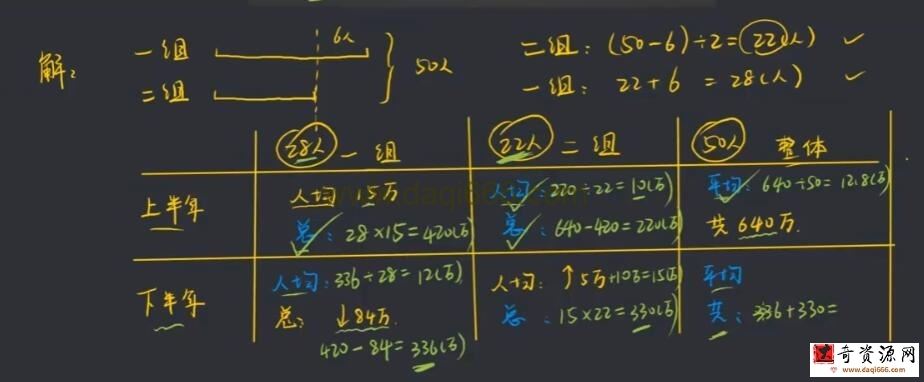 解：
一组
6人
二组
50人
二组：(50-6)÷2=22(人) ✓
一组：22+6=28(人) ✓
28人 一组
22人 二组
50人 整体
上半年
人均 15万
总：28×15=420(万)
人均：220÷22=10(万)
总：640-420=220(万)
平均：640÷50=12.8(万)
共 640万.
下半年
人均：336÷28=12(万)
总：↓84万.
420-84=336(万)
人均：↑5万+10万=15(万)
总：15×22=330(万)
平均
共：336+330=
www.daqi666.com
达奇资源网
www.daqi666.com